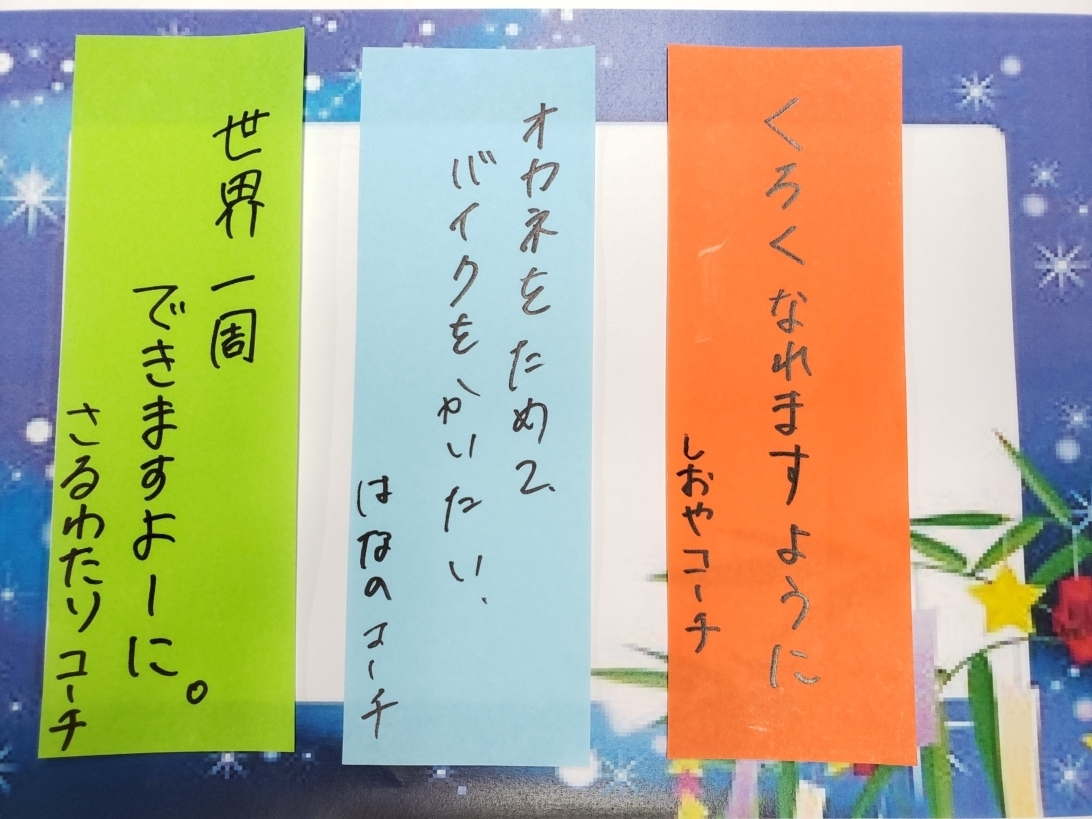 くろくなれますように
しおやコーチ
オカネをためて、
バイクをかいたい、
はなのコーチ
世界一周
できますよーに。
さるわたりコーチ